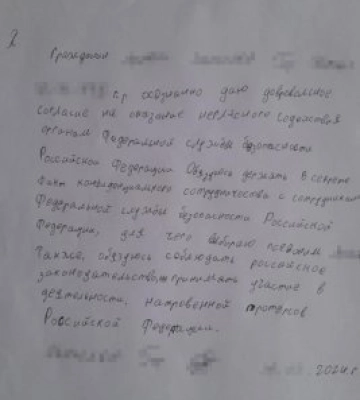 Я
Гражданин
г.р осознанно даю добровольное
согласие на оказание негласного содействия
органам Федеральной службы безопасности
Российской Федерации. Обязуюсь держать в секрете
факт конфиденциального сотрудничества с сотрудниками
Федеральной службы безопасности Российской
Федерации, для чего выбираю псевдоним
Также, обязуюсь соблюдать российское
законодательство, принимать участие в
деятельности, направленной против
Российской Федерации.
2024 г.